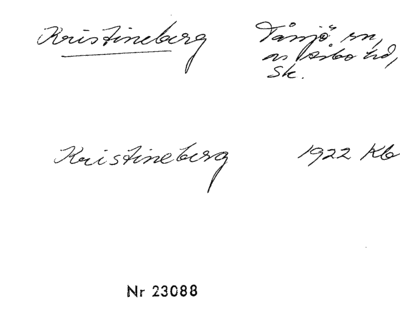 Kristineberg Tåssjö sn,
n Åsbo hd,
Sk.
Kristineberg 1922 Kb
Nr 23088